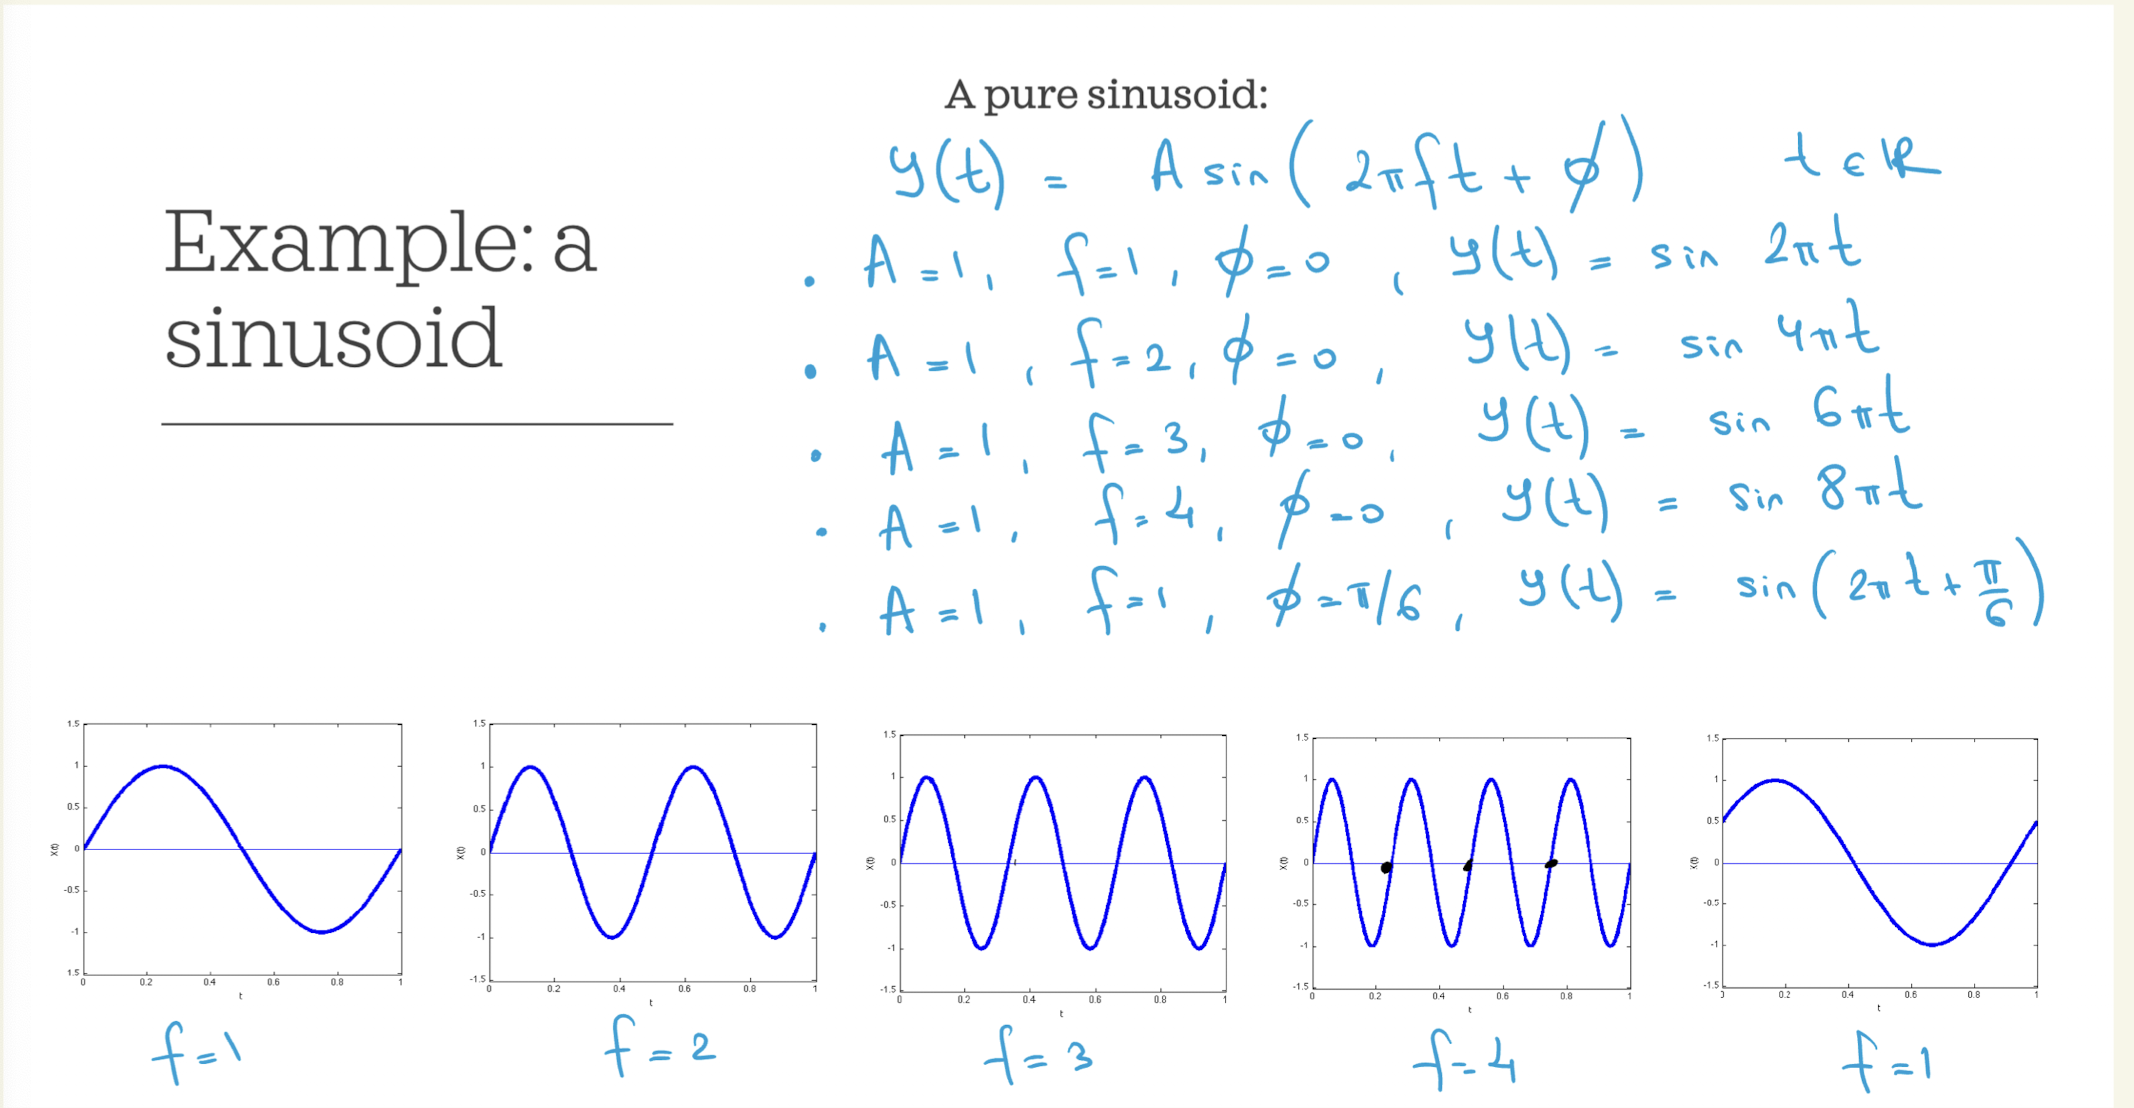 A pure sinusoid:
y(t) = A sin(2πft + ϕ) t ∈ ℝ
Example: a
sinusoid
• A=1, f=1, ϕ=0, y(t) = sin 2πt
• A=1, f=2, ϕ=0, y(t) = sin 4πt
• A=1, f=3, ϕ=0, y(t) = sin 6πt
• A=1, f=4, ϕ=0, y(t) = sin 8πt
• A=1, f=1, ϕ=π/6, y(t) = sin(2πt + π/6)
1.5
1
0.5
0
-0.5
-1
1.5
X(t)
0 0.2 0.4 0.6 0.8 1
t
f=1
1.5
1
0.5
0
-0.5
-1
-1.5
X(t)
0 0.2 0.4 0.6 0.8 1
t
f=2
1.5
1
0.5
0
-0.5
-1
-1.5
X(t)
0 0.2 0.4 0.6 0.8 1
t
f=3
1.5
1
0.5
0
-0.5
-1
-1.5
X(t)
0 0.2 0.4 0.6 0.8 1
t
f=4
1.5
1
0.5
0
-0.5
-1
-1.5
X(t)
0 0.2 0.4 0.6 0.8 1
t
f=1